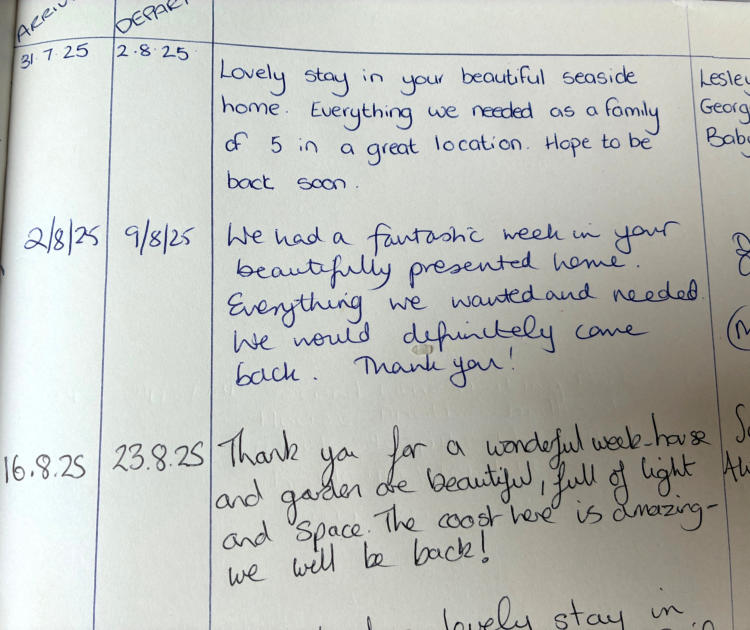 31.7.25 2.8.25
Lovely stay in your beautiful seaside
home. Everything we needed as a family
of 5 in a great location. Hope to be
back soon.
Lesley
2/8/25 9/8/25 We had a fantastic week in your
beautifully presented home.
Everything we wanted and needed.
We would definitely come
back. Thank you!
16.8.25 23.8.25 Thank you for a wonderful week - house
and garden are beautiful, full of light
and space. The coast here is amazing -
we will be back!
lovely stay in